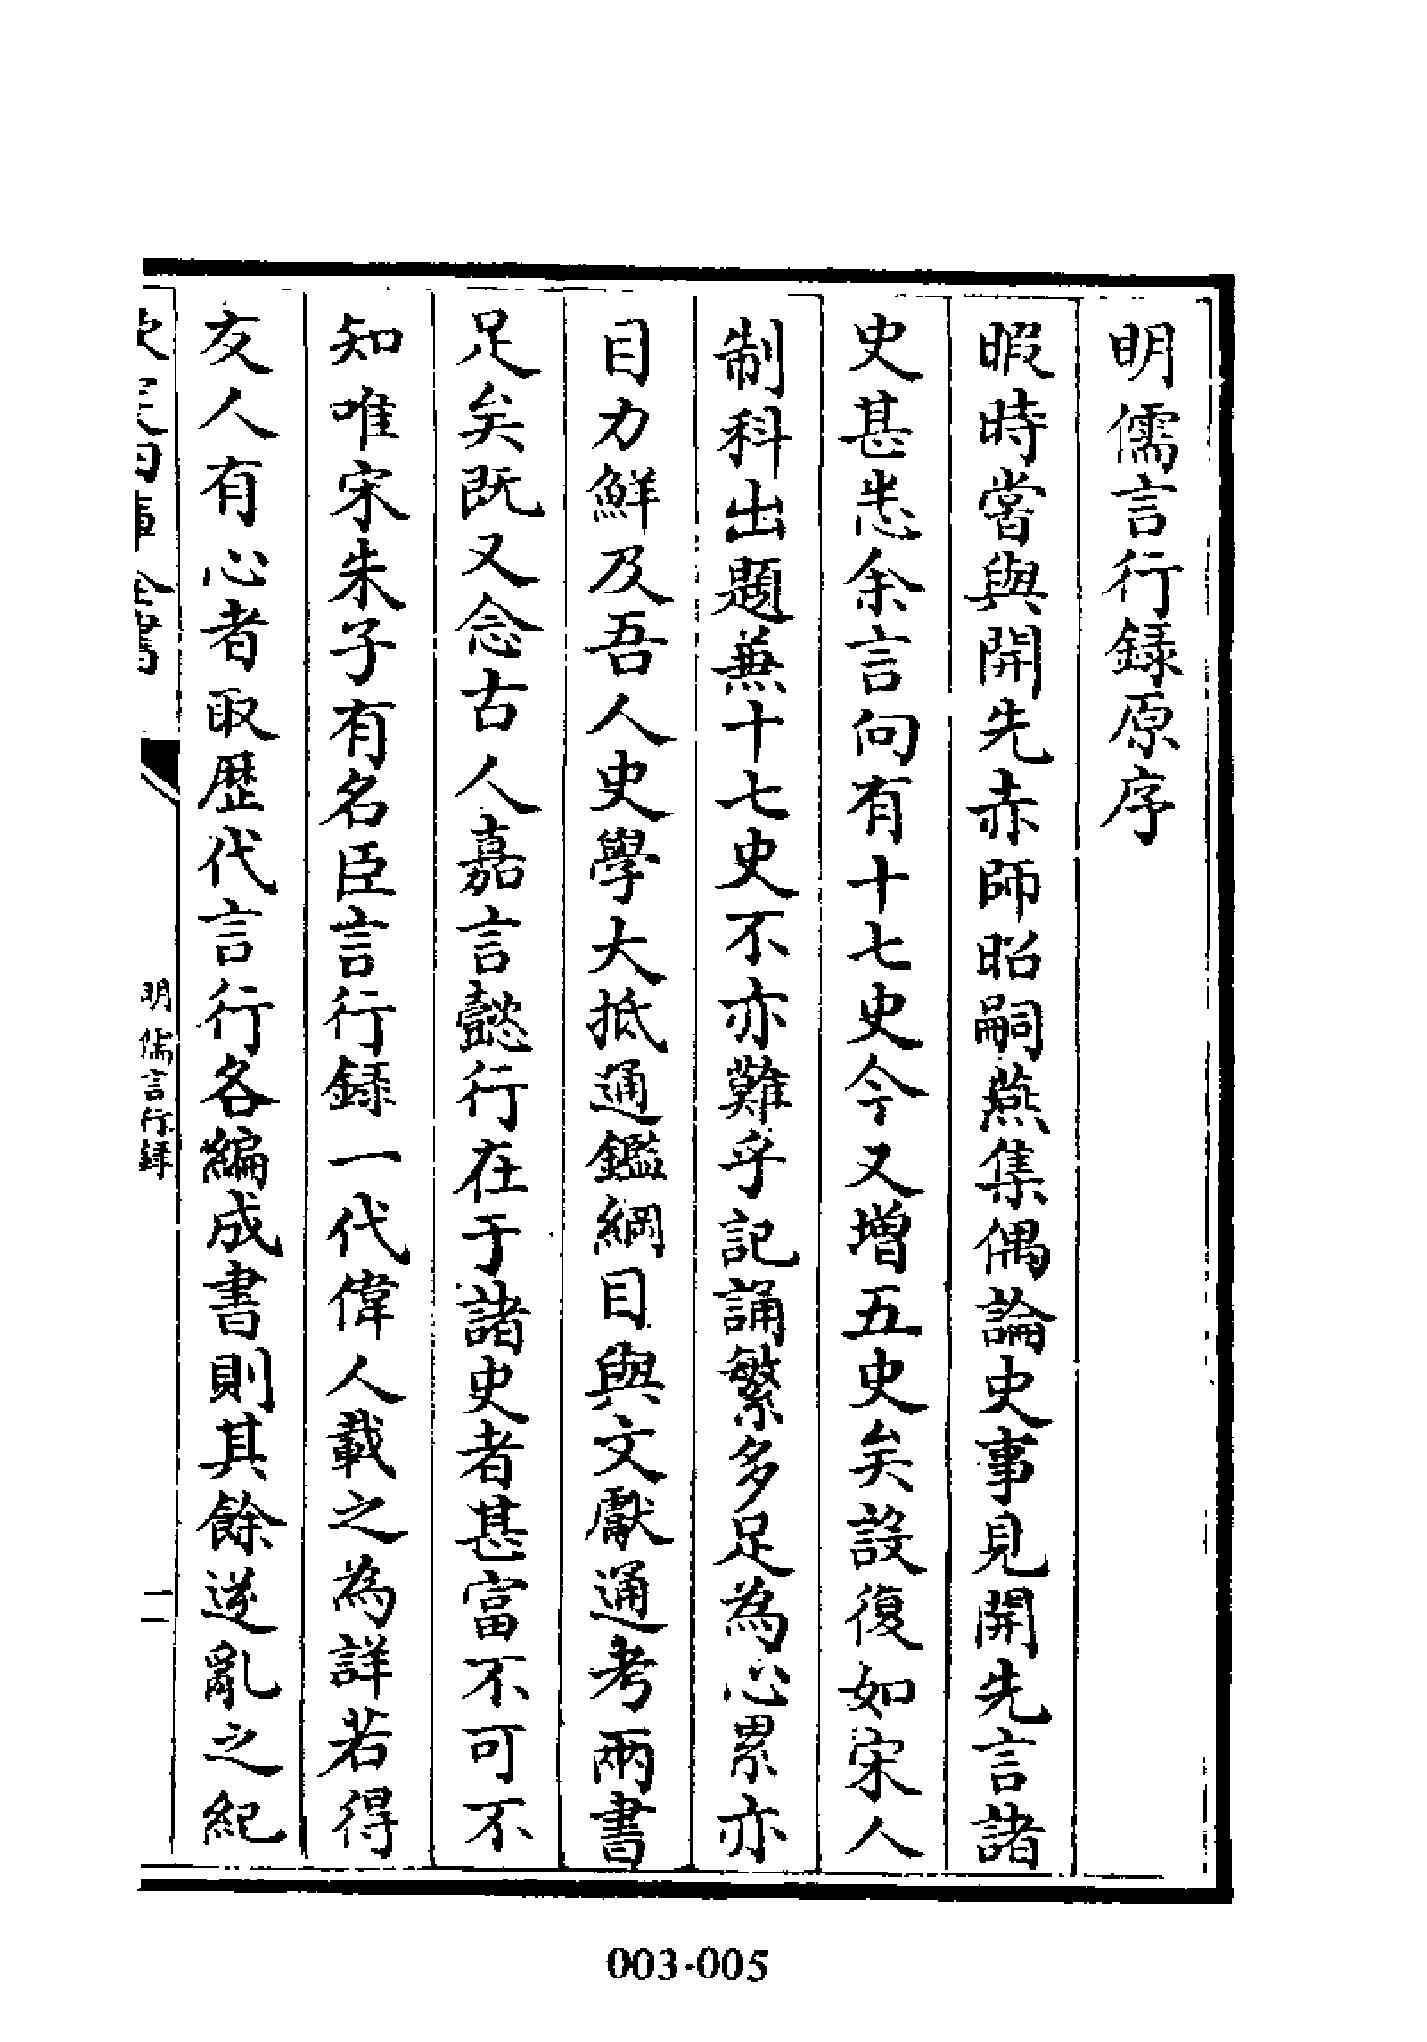 明儒言行録原序
暇時嘗與開先赤師昭嗣燕集偶論史事見開先言諸
史甚悉余言向有十七史今又增五史矣設復如宋人
制科出題兼十七史不亦難乎記誦繁多足為心累亦
目力鮮及吾人史學大抵通鑑綱目與文獻通考兩書
足矣既又念古人嘉言懿行在于諸史者甚富不可不
知唯宋朱子有名臣言行録一代偉人載之為詳若得
友人有心者取歴代言行各編成書則其餘逆亂之紀
欽定四庫全書
明儒言行録
一
003-005